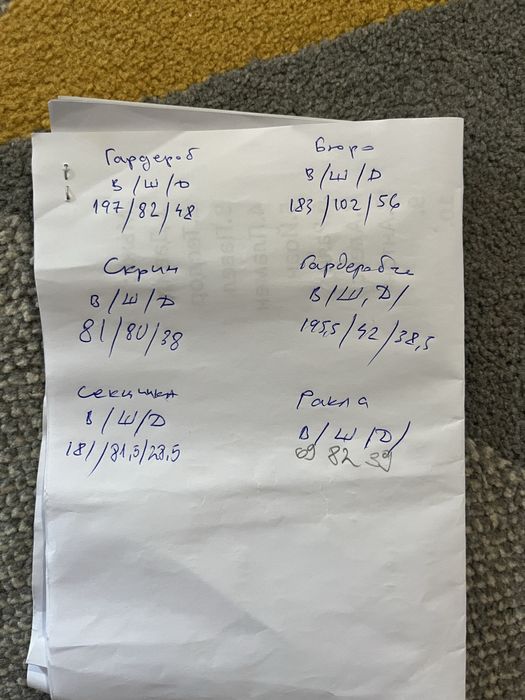 Гардероб
В/Ш/Д
197/82/48
Бюро
В/Ш/Д
183/102/56
Скрин
В/Ш/Д
81/80/38
Гардеробче
В/Ш, Д/
195,5/42/38,5
Секцийка
В/Ш/Д
181/81,5/28,5
Ракла
В/Ш/Д/
82 39